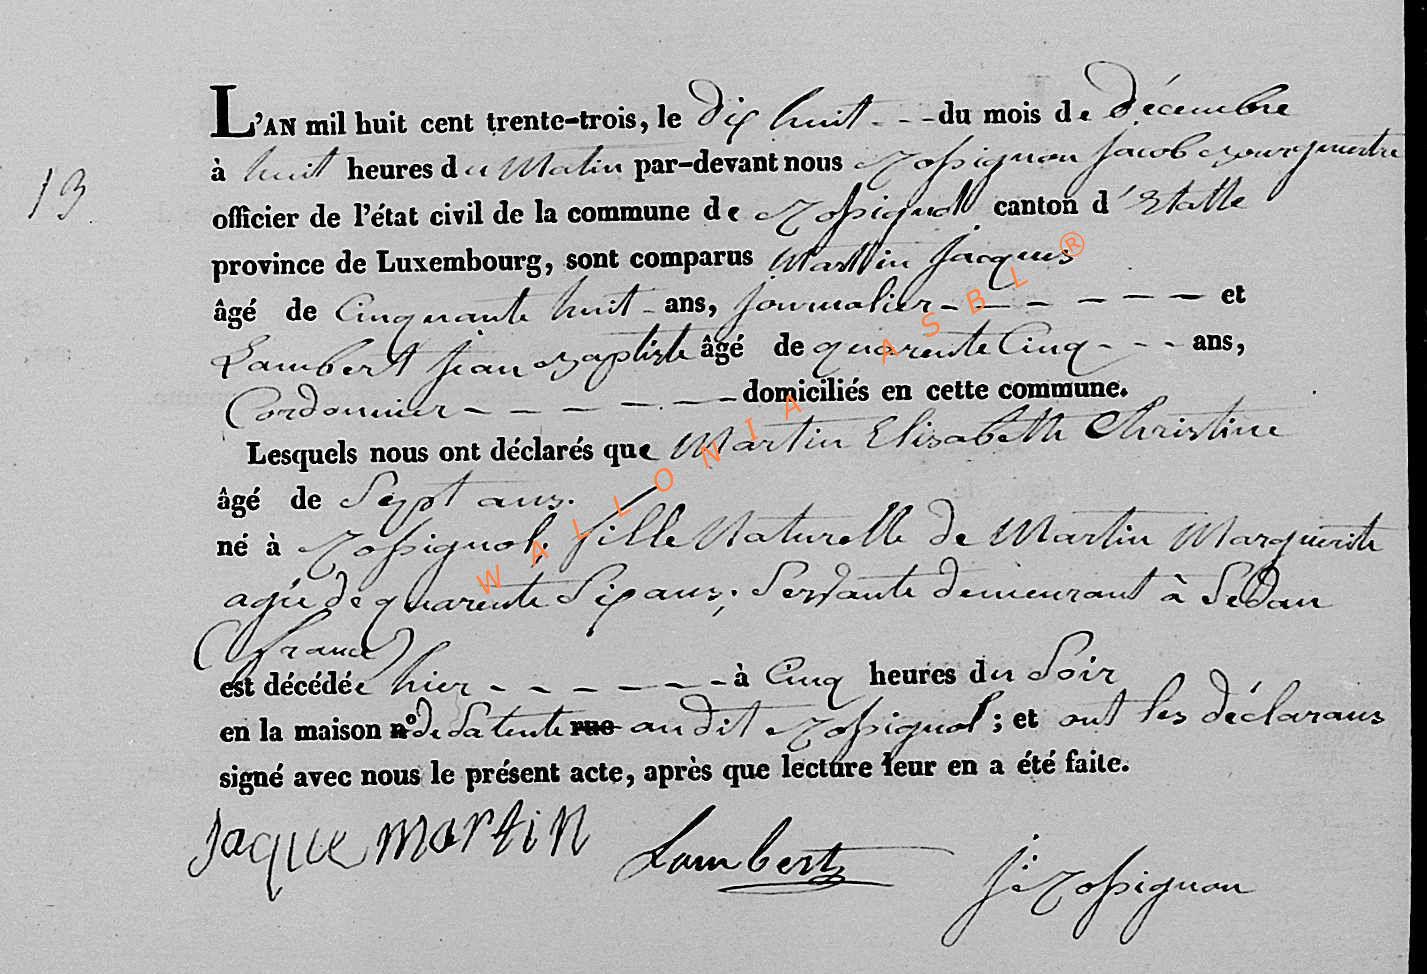 L'AN mil huit cent trente-trois, le dix huit - - - du mois de décembre
13
à huit heures du Matin par-devant nous Rossignon Jacob Bourguestre
officier de l'état civil de la commune de Rossignol canton d'Etalle
province de Luxembourg, sont comparus Martin Jacques
âgé de Cinquante huit - ans, journalier - - - - - - - et
Lambert Jean Baptiste âgé de quarente Cinq - - - ans,
Cordonnier - - - - - - domiciliés en cette commune.
Lesquels nous ont déclarés que Martin Elisabeth Christine
âgé de Sept ans.
né à Rossignol, fille Naturelle de Martin Marguerite
agée de quarente Six ans; Servante demeurant à Sedan
(france)
est décédée hier - - - - - - - à Cinq heures du Soir
en la maison n° de Satente rue au dit Rossignol ; et ont les déclarans
signé avec nous le présent acte, après que lecture leur en a été faite.
Jaque martin Lambert J: Rossignon
WALLONIA ASBL ®